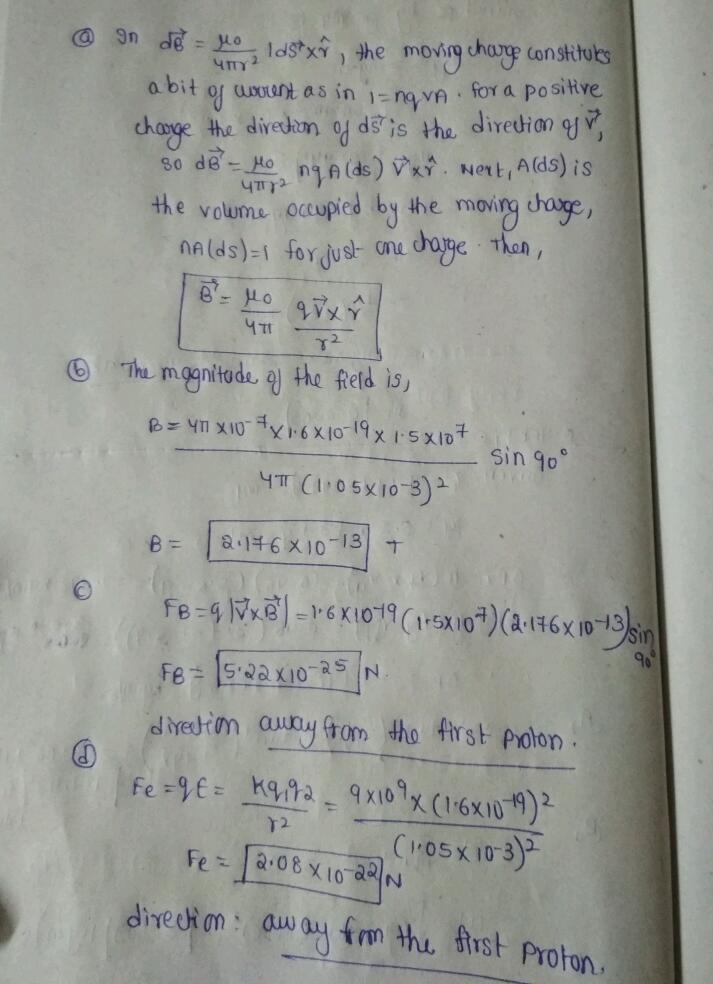 ⓐ In dB⃗ = μ0/4πr² I ds⃗ × r̂, the moving charge constitutes
a bit of current as in I = nqvA. for a positive
charge the direction of ds⃗ is the direction of v⃗,
so dB⃗ = μ0/4πr² nqA(ds) v⃗ × r̂. Next, A(ds) is
the volume occupied by the moving charge,
nA(ds)=1 for just one charge. then,
B⃗ = μ0/4π qv⃗ × r̂/r²
ⓑ The magnitude of the field is,
B = 4π ×10-7 × 1.6 ×10-19 × 1.5 ×10⁷/4π (1.05×10-3)² sin 90°
B = 2.176 ×10-13 T
ⓒ
FB = q |v⃗×B⃗| = 1.6×10-19 (1.5×10⁷)(2.176×10-13) sin 90°
FB = 5.22×10-25 N.
direction away from the first proton.
ⓓ
Fe = qE = Kq1q2/r² = 9×10⁹ × (1.6×10-19)²/(1.05×10-3)²
Fe = 2.08 × 10-22 N
direction: away from the first proton.